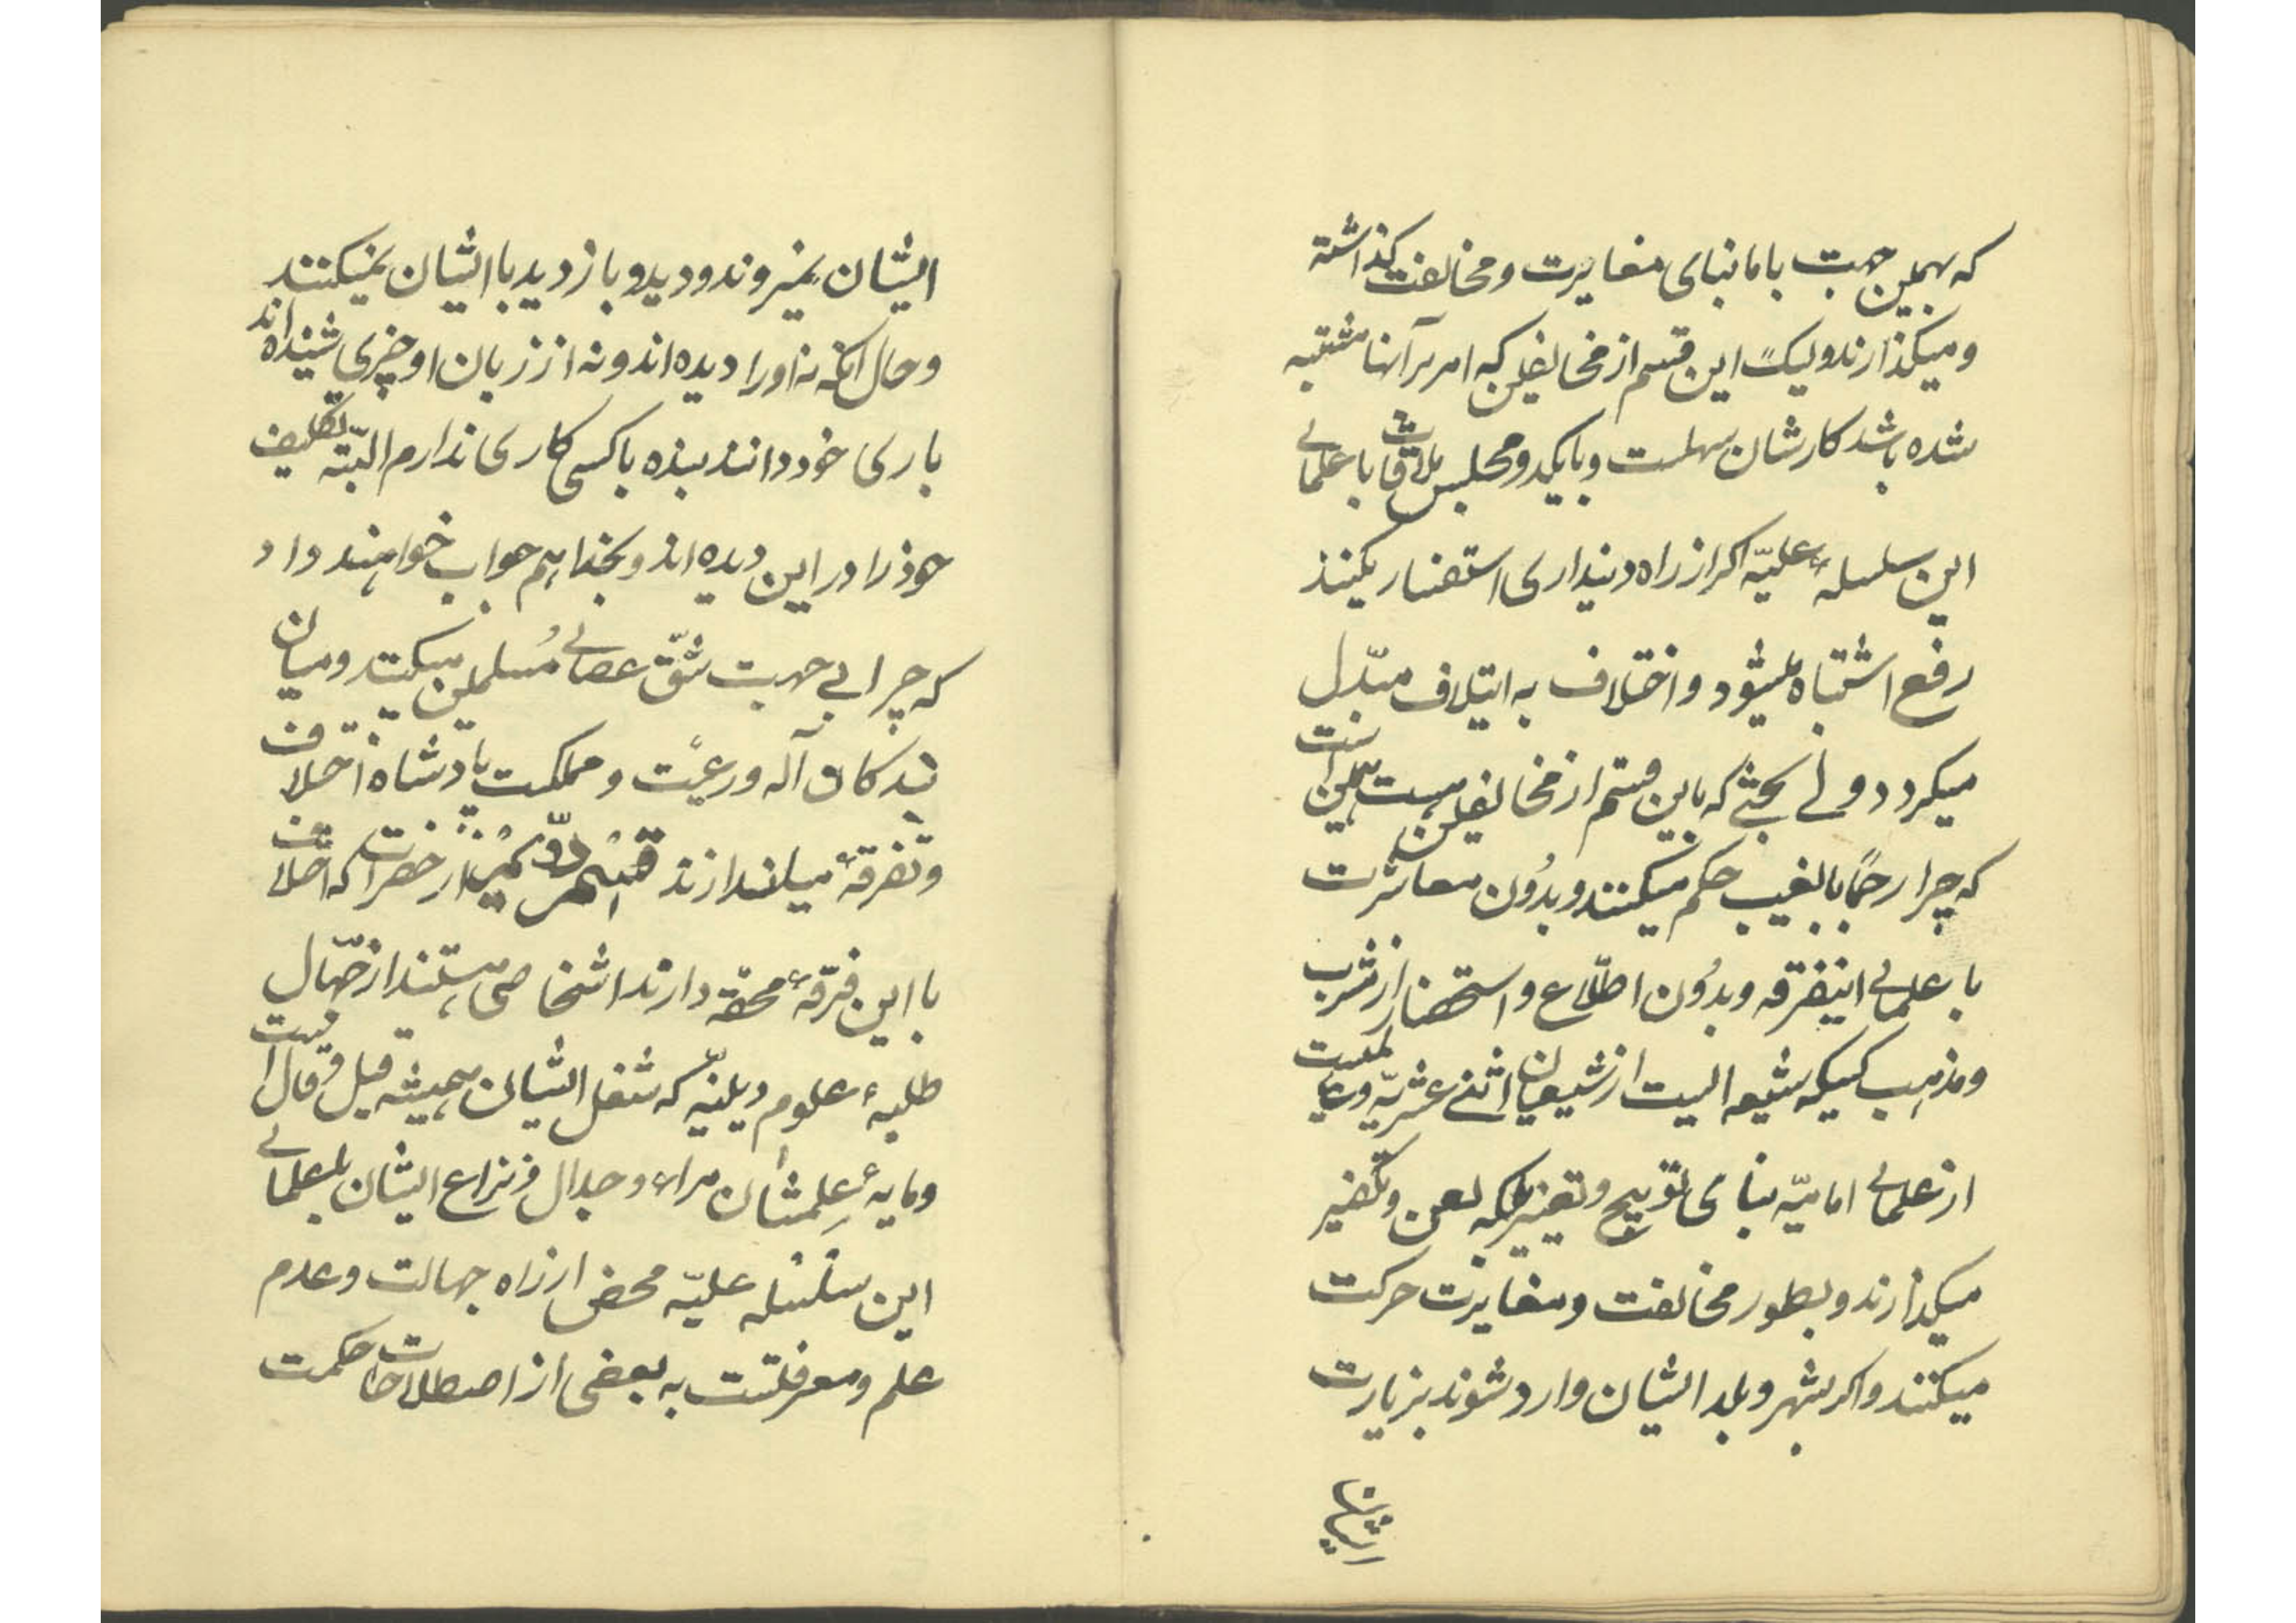 که بهمین جهت با ما بنای مغایرت و مخالفت کذاشته
و میکذارند ولیکً این قسم از مخالفین که امر بر آنها مشتبه
شده باشد کارشان سهلست و بایکدو مجلس ملاقات با علمای
این سلسلهٔ علیّه اکر از راه دینداری استفسار بکنند
رفع اشتباه میشود و اختلاف به ایتلاف مبدّل
میکردد ولی بحثی که باین قسم از مخالفین هست همین است
که چرا رجماً بالغیب حکم میکنند و بدُون معاشرت
با علمای اینفرقه و بدُون اطّلاع و استحضار از مشرب
و مذهب کسیکه شیعه ایست از شیعیان اثنی عشریّه و عالمیست
از علمای امامیّه بنای توبیخ و تعییر بلکه لعن و تکفیر
میکذارند و بطور مخالفت و مغایرت حرکت
میکنند و اکر بشهر و بلد ایشان وارد شوند بزیارت
ایشان
ایشان نمیروند و دید و بازدید با ایشان نمیکنند
و حال آنکه نه او را دیده اند و نه از زبان او چیزی شنیده اند
باری خود دانند بنده با کسی کاری ندارم البتّه تکلیف
خود را در این دیده اند و بخدا هم جواب خواهند داد
که چرا بی جهت شقّ عصای مُسلمین میکنند و میان
بندکان آله و رعیّت و مملکت پادشاه اختلاف
و تفرقهٔ میاندازند قسم دوّیمین از حضرات که اختلاف
با این فرقهٔ محقّه دارند اشخاصی هستند از جهّال
طلبهٔ علوم دینیّه که شغل ایشان همیشه قیل و قال است
و مایهٔ علِمشان مراء و جدال و نزاع ایشان با علمای
این سلسله علیّه محض از راه جهالت و عدم
علم و معرفتست به بعضی از اصطلاحات حکمت